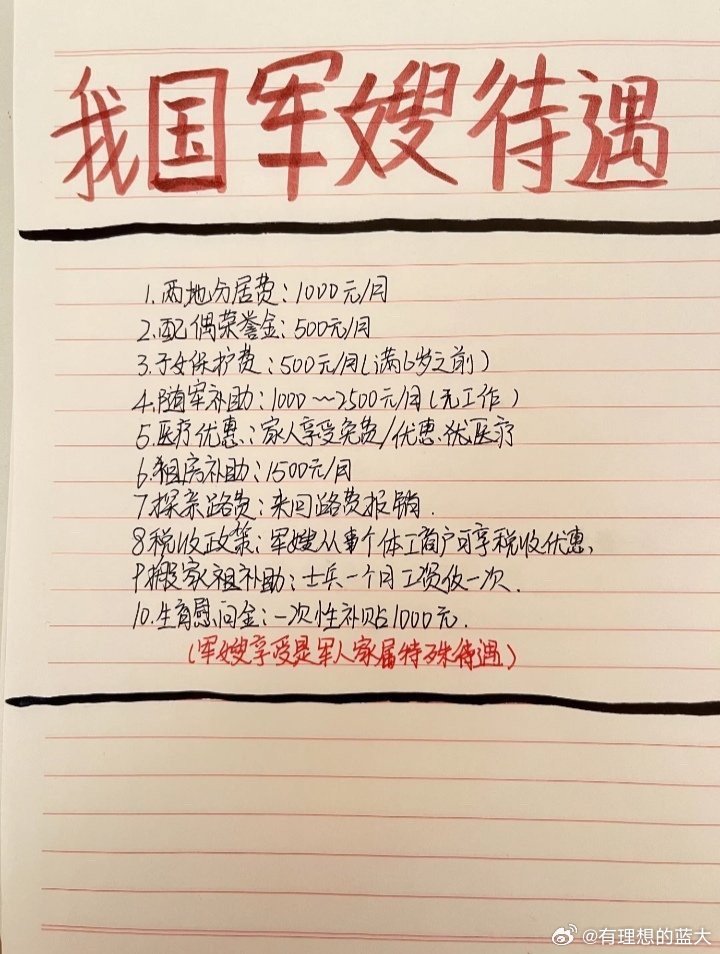 我国军嫂待遇
1.两地分居费：1000元/月
2.配偶荣誉金：500元/月
3.子女保护费：500元/月（满6岁之前）
4.随军补助：1000~2500元/月（无工作）
5.医疗优惠：家人享受免费/优惠.犹医疗
6.租房补助：1500元/月
7.探亲路费：来回路费报销.
8税收政策：军嫂从事个体工商户可享税收优惠、
9搬家祖补助：士兵一个月工资/一次.
10.生育慰问金：一次性补贴1000元.
（军嫂享受是军人家属特殊待遇）
@有理想的蓝大